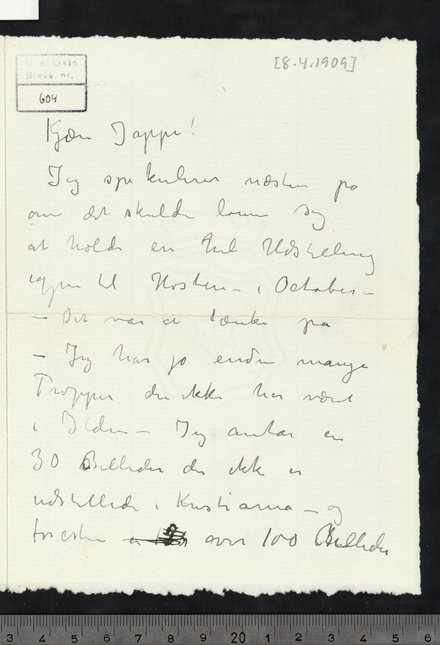 [8.4.1909]
604
Kjære Jappe!
Jeg spekulerer næsten på
om det skulde lønne sig
at holde en hel Udstilling
igjen til Høsten – i October –
– Det var at tænke på
– Jeg har jo endnu mange
Tropper der ikke har været
i Ilden – Jeg antar en
30 Billeder der ikke er
udstillede i Kristiania – og
foresten over 100 Billeder